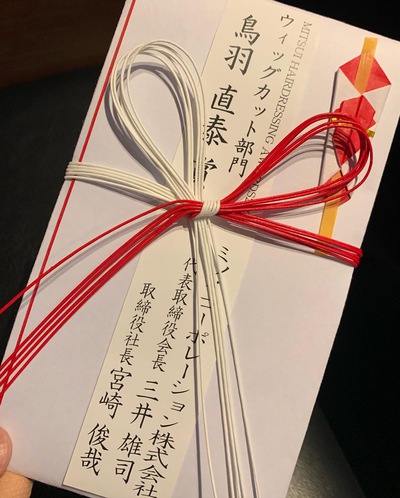 MITSUI HAIRDRESSING
ウィッグカット部門
鳥羽 直泰
コーポレーション株式会社
代表取締役会長 三井 雄司
取締役社長 宮崎 俊哉